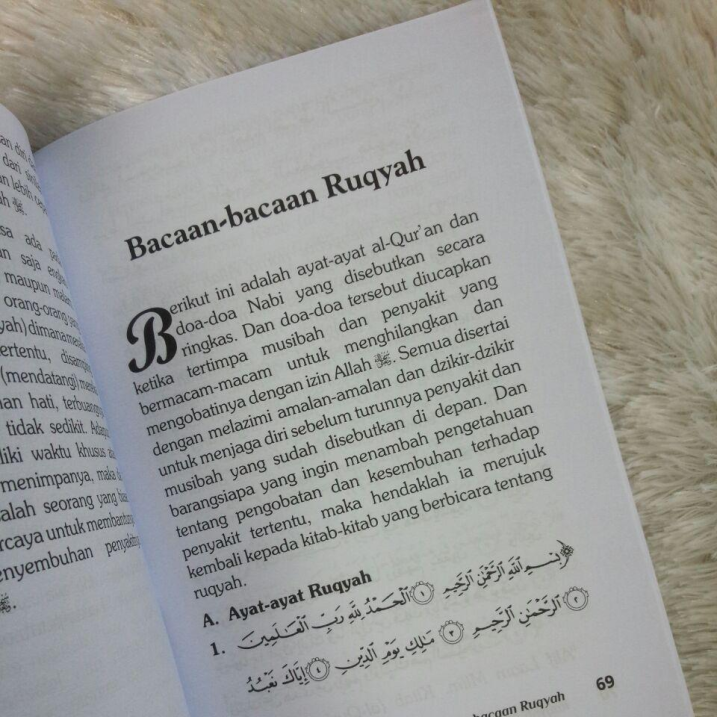 dari
lebih
ada
saja
maupun
orang-orang
dimana
ertentu,
(mendatangi)
hati,
tidak sedikit.
waktu khusus
menimpanya, maka
seorang yang
untuk
ﷺ.
Bacaan-bacaan Ruqyah
Berikut ini adalah ayat-ayat al-Qur'an dan
doa-doa Nabi yang disebutkan secara
ringkas. Dan doa-doa tersebut diucapkan
ketika tertimpa musibah dan penyakit yang
bermacam-macam untuk menghilangkan dan
mengobatinya dengan izin Allah ﷻ. Semua disertai
dengan melazimi amalan-amalan dan dzikir-dzikir
untuk menjaga diri sebelum turunnya penyakit dan
musibah yang sudah disebutkan di depan. Dan
barangsiapa yang ingin menambah pengetahuan
tentang pengobatan dan kesembuhan terhadap
penyakit tertentu, maka hendaklah ia merujuk
kembali kepada kitab-kitab yang berbicara tentang
ruqyah.
A. Ayat-ayat Ruqyah
1. بِسْمِ اللَّهِ الرَّحْمَٰنِ الرَّحِيمِ ١ الْحَمْدُ لِلَّهِ رَبِّ الْعَالَمِينَ
٢ الرَّحْمَٰنِ الرَّحِيمِ ٣ مَالِكِ يَوْمِ الدِّينِ ٤ إِيَّاكَ نَعْبُدُ
Ruqyah 69